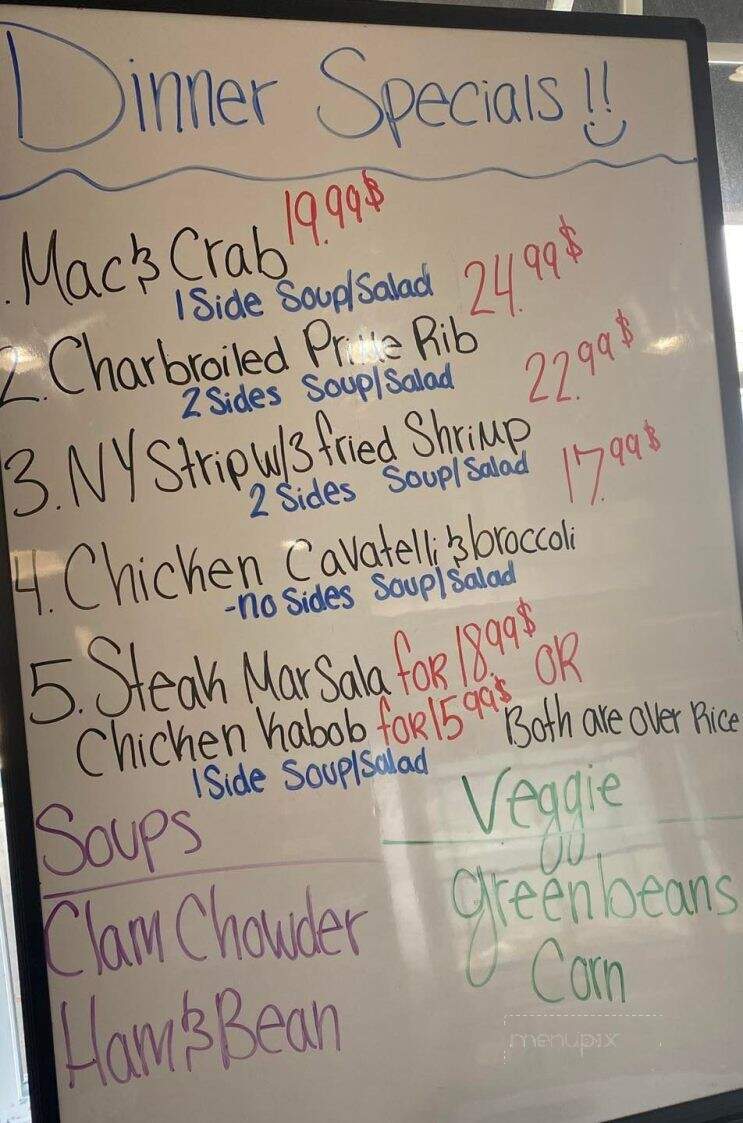 Dinner Specials!!
. Mac & Crab 19.99$
1 Side Soup/Salad
2. Charbroiled Prime Rib 24.99$
2 Sides Soup/Salad
3. NY Strip w/3 fried Shrimp 22.99$
2 Sides Soup/Salad
4. Chicken Cavatelli & broccoli 17.99$
-no Sides Soup/Salad
5. Steak Marsala for 18.99$ OR
Chicken Kabob for 15.99$ Both are over Rice
1 Side Soup/Salad
Soups
Clam Chowder
Ham & Bean
Veggie
green beans
Corn
menupix